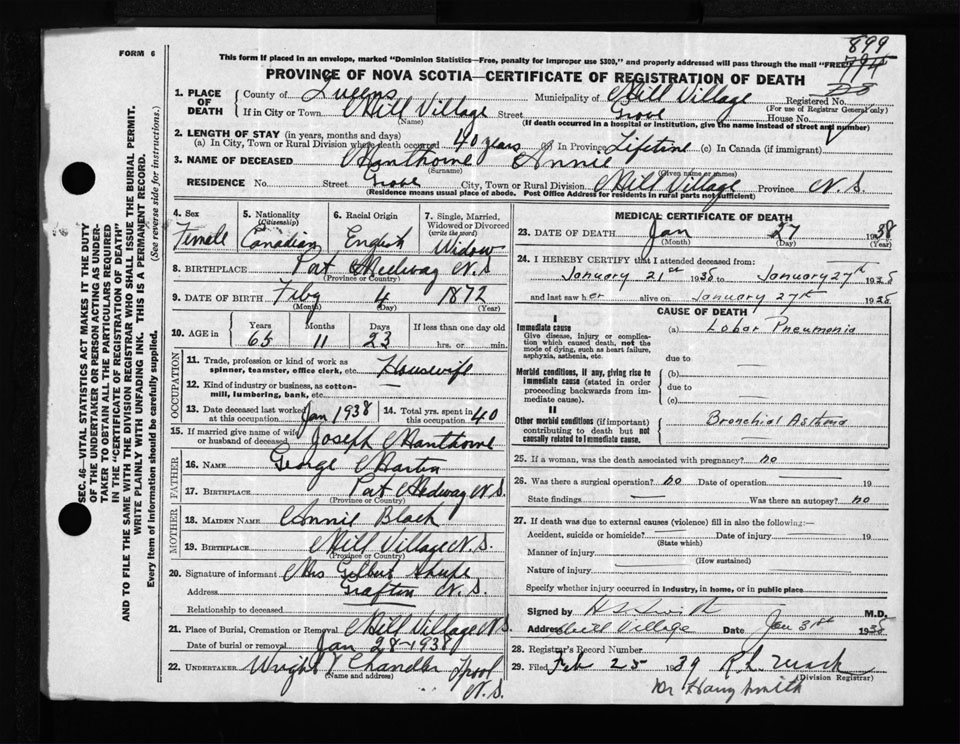 FORM 6
This form if placed in an envelope, marked "Dominion Statistics—Free, penalty for improper use $300," and properly addressed will pass through the mail "FREE"
899
794
PROVINCE OF NOVA SCOTIA—CERTIFICATE OF REGISTRATION OF DEATH
1. PLACE OF DEATH County of Queens Municipality of Mill Village Registered No.
(For use of Registrar General only)
If in City or Town Mill Village Street Grove House No.
(Name) (If death occurred in a hospital or institution, give the name instead of street and number)
2. LENGTH OF STAY (in years, months and days)
(a) In City, Town or Rural Division where death occurred 40 years (b) In Province Lifetime (c) In Canada (if immigrant)
3. NAME OF DECEASED Annie
(Surname) (Given name or names)
RESIDENCE No. Street Grove City, Town or Rural Division Mill Village Province N.S.
(Residence means usual place of abode. Post Office Address for residents in rural parts not sufficient)
4. Sex Female
5. Nationality (Citizenship) Canadian
6. Racial Origin English
7. Single, Married, Widowed or Divorced (write the word) Widow
8. BIRTHPLACE Port Medway N.S
(Province or Country)
9. DATE OF BIRTH Feby 4 1872
(Month) (Day) (Year)
10. AGE in Years 65 Months 11 Days 23 If less than one day old
hrs. or min.
OCCUPATION
11. Trade, profession or kind of work as spinner, teamster, office clerk, etc. Housewife
12. Kind of industry or business, as cotton-mill, lumbering, bank, etc. —
13. Date deceased last worked at this occupation Jan 1938 14. Total yrs. spent in this occupation 40
15. If married give name of wife or husband of deceased Joseph
FATHER
16. NAME George Martin
17. BIRTHPLACE Port Medway N.S.
(Province or Country)
MOTHER
18. MAIDEN NAME Annie Black
19. BIRTHPLACE Mill Village N.S.
(Province or Country)
20. Signature of informant Mrs Gilbert
Address Grafton N.S.
Relationship to deceased
21. Place of Burial, Cremation or Removal Mill Village N.S.
Date of burial or removal Jan 28-1938
22. UNDERTAKER Wright Chandler
(Name and address) N.S.
MEDICAL CERTIFICATE OF DEATH
23. DATE OF DEATH Jan 27 1938
(Month) (Day) (Year)
24. I HEREBY CERTIFY that I attended deceased from:
January 21st 1938 to January 27th 1938
and last saw her alive on January 27th 1938
CAUSE OF DEATH
I
Immediate cause
Give disease, injury or complication which caused death, not the mode of dying, such as heart failure, asphyxia, asthenia, etc.
(a) Lobar Pneumonia
due to
Morbid conditions, if any, giving rise to immediate cause (stated in order proceeding backwards from immediate cause).
(b)
due to
(c)
II
Other morbid conditions (if important) contributing to death but not causally related to immediate cause.
Bronchial Asthma
25. If a woman, was the death associated with pregnancy? no
26. Was there a surgical operation? no Date of operation — 19
State findings — Was there an autopsy? no
27. If death was due to external causes (violence) fill in also the following:—
Accident, suicide or homicide? Date of injury — 19
(State which)
Manner of injury
(How sustained)
Nature of injury
Specify whether injury occurred in industry, in home, or in public place
Signed by M.D.
Address Mill Village Date Jan 31st 1938
28. Registrar's Record Number
29. Filed Feb 25 1939
(Division Registrar)
Dr Harry Smith
SEC. 46—VITAL STATISTICS ACT MAKES IT THE DUTY
OF THE UNDERTAKER OR PERSON ACTING AS UNDER-
TAKER TO OBTAIN ALL THE PARTICULARS REQUIRED
IN THE "CERTIFICATE OF REGISTRATION OF DEATH"
AND TO FILE THE SAME WITH THE DIVISION REGISTRAR WHO SHALL ISSUE THE BURIAL PERMIT.
WRITE PLAINLY WITH UNFADING INK. THIS IS A PERMANENT RECORD.
Every item of information should be carefully supplied. (See reverse side for instructions.)